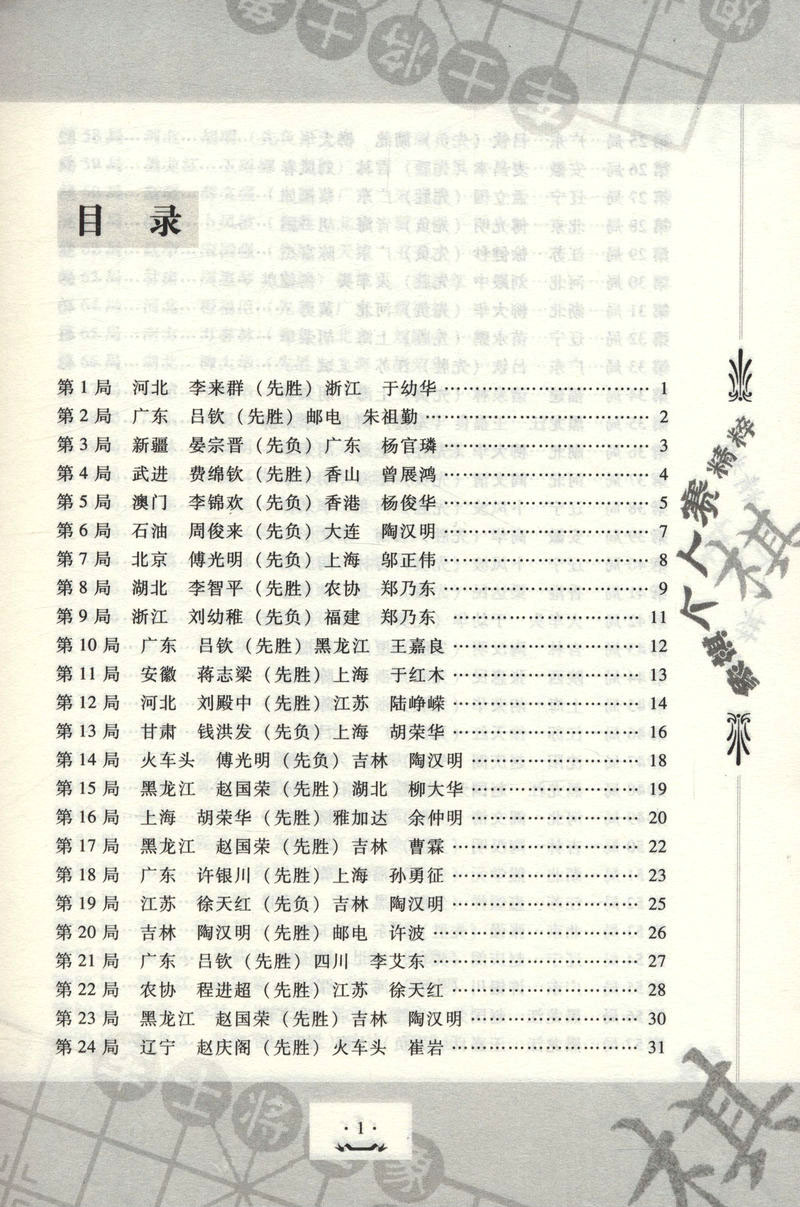 目 录
第1局 河北 李来群(先胜)浙江 于幼华………………………… 1
第2局 广东 吕钦(先胜)邮电 朱祖勤………………………… 2
第3局 新疆 晏宗晋(先负)广东 杨官璘………………………… 3
第4局 武进 费绵钦(先胜)香山 曾展鸿………………………… 4
第5局 澳门 李锦欢(先负)香港 杨俊华………………………… 5
第6局 石油 周俊来(先负)大连 陶汉明………………………… 7
第7局 北京 傅光明(先负)上海 邬正伟………………………… 8
第8局 湖北 李智平(先胜)农协 郑乃东………………………… 9
第9局 浙江 刘幼稚(先负)福建 郑乃东 ……………………… 11
第10局 广东 吕钦(先胜)黑龙江 王嘉良……………………… 12
第11局 安徽 蒋志梁(先胜)上海 于红木……………………… 13
第12局 河北 刘殿中(先胜)江苏 陆峥嵘……………………… 14
第13局 甘肃 钱洪发(先负)上海 胡荣华……………………… 16
第14局 火车头 傅光明(先负)吉林 陶汉明…………………… 18
第15局 黑龙江 赵国荣(先胜)湖北 柳大华…………………… 19
第16局 上海 胡荣华(先胜)雅加达 余仲明…………………… 20
第17局 黑龙江 赵国荣(先胜)吉林 曹霖……………………… 22
第18局 广东 许银川(先胜)上海 孙勇征……………………… 23
第19局 江苏 徐天红(先负)吉林 陶汉明……………………… 25
第20局 吉林 陶汉明(先胜)邮电 许波………………………… 26
第21局 广东 吕钦(先胜)四川 李艾东………………………… 27
第22局 农协 程进超(先胜)江苏 徐天红……………………… 28
第23局 黑龙江 赵国荣(先胜)吉林 陶汉明…………………… 30
第24局 辽宁 赵庆阁(先胜)火车头 崔岩……………………… 31
象棋个人赛精粹
棋
棋
·1·
士
将
士
车
炮
车
士
将
象